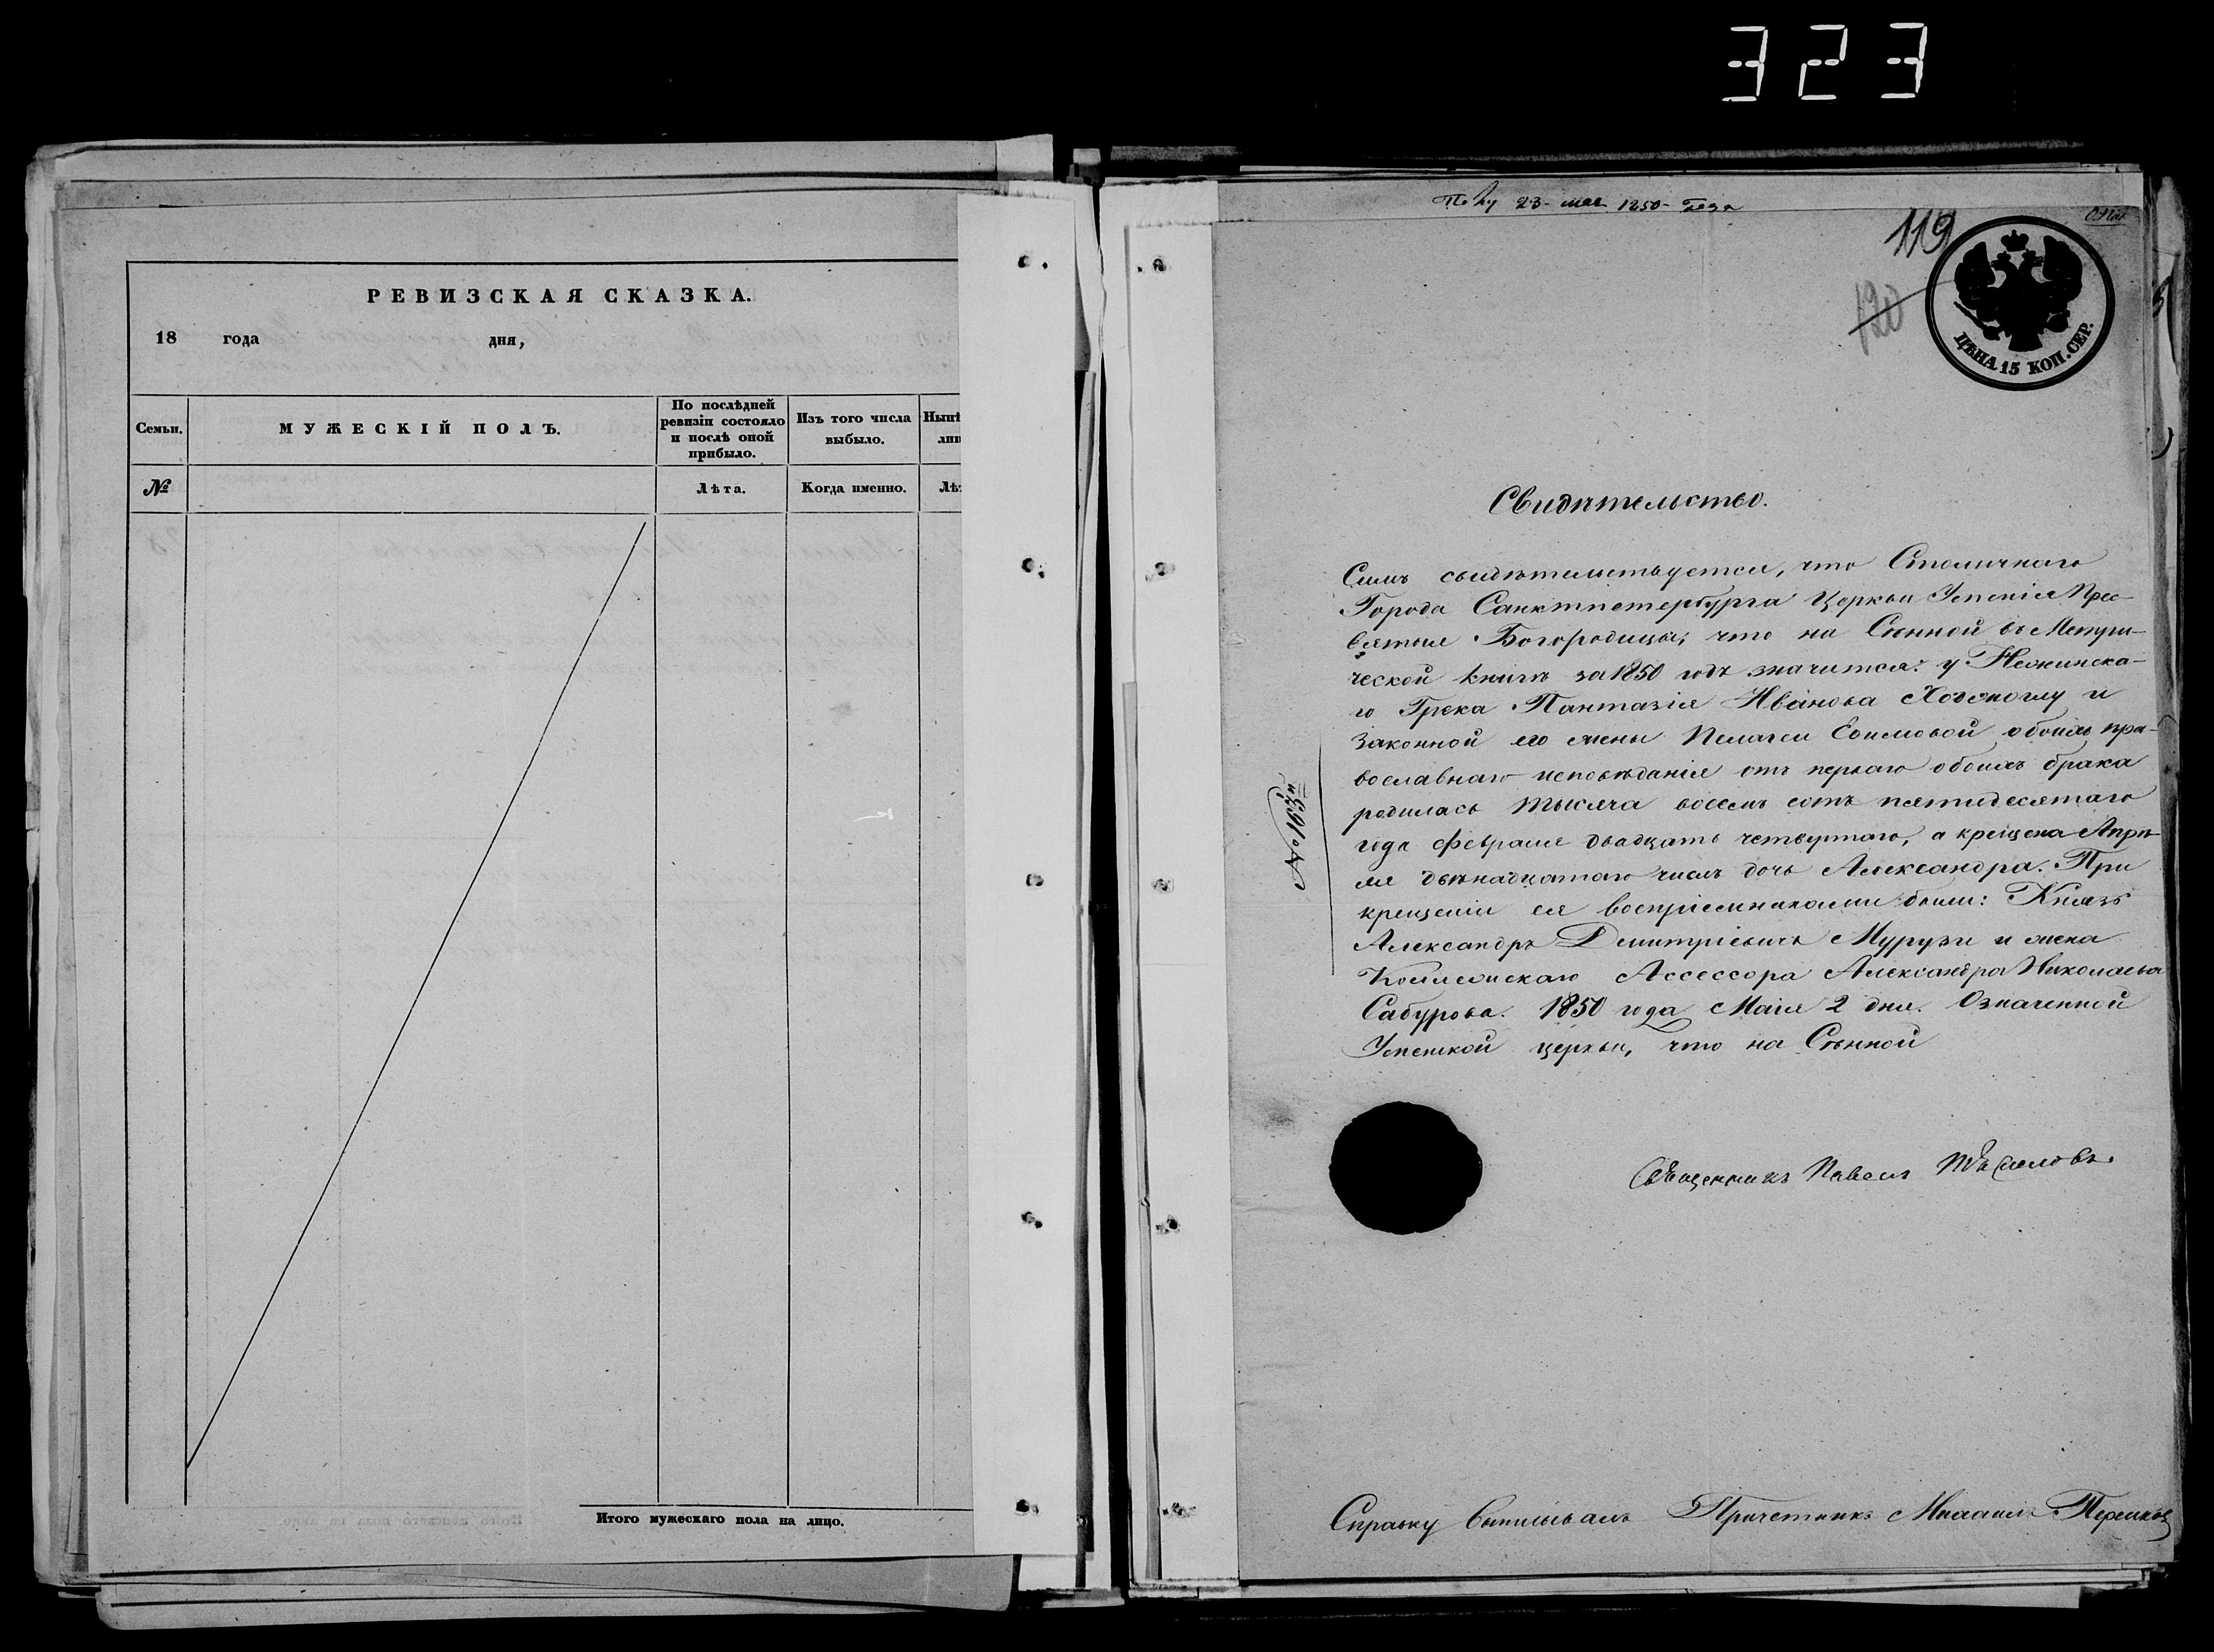 323
РЕВИЗСКАЯ СКАЗКА.
18 года дня,
Семьи.
МУЖЕСКІЙ ПОЛЪ.
По послѣдней ревизіи состояло и послѣ оной прибыло.
Изъ того числа выбыло.
№
Лѣта.
Когда именно.
Итого мужескаго пола на лицо.
23 мая 1850
119
120
ЦѢНА 15 КОП. СЕР.
Свидѣтельство.
Симъ свидѣтельствуется, что Столичнаго
Города Санктпетербурга Церкви Успенія Прес-
вятыя Богородицы, что на Сѣнной въ Метри-
ческой книгѣ за 1850 годъ значится: у Нежинска-
го Грека Пантазія Иванова и
законной его жены Пелагеи Евимовой обоихъ пра-
вославнаго исповѣданія отъ перваго обоихъ брака
родилась тысяча восемь сотъ пятидесятаго
года февраля двадцать четвертаго, а крещена Апрѣ-
ля двѣнадцатаго числъ дочь Александра. При
крещеніи ея воспріемниками были: Князь
Александръ Димитріевичъ Мурузи и жена
Коллежскаго Ассессора Александра Николаева
Сабурова. 1850 года Маія 2 дня. Означенной
Успенской церкви, что на Сѣнной
Священникъ Павелъ
Справку выписывалъ Причетникъ Михаилъ